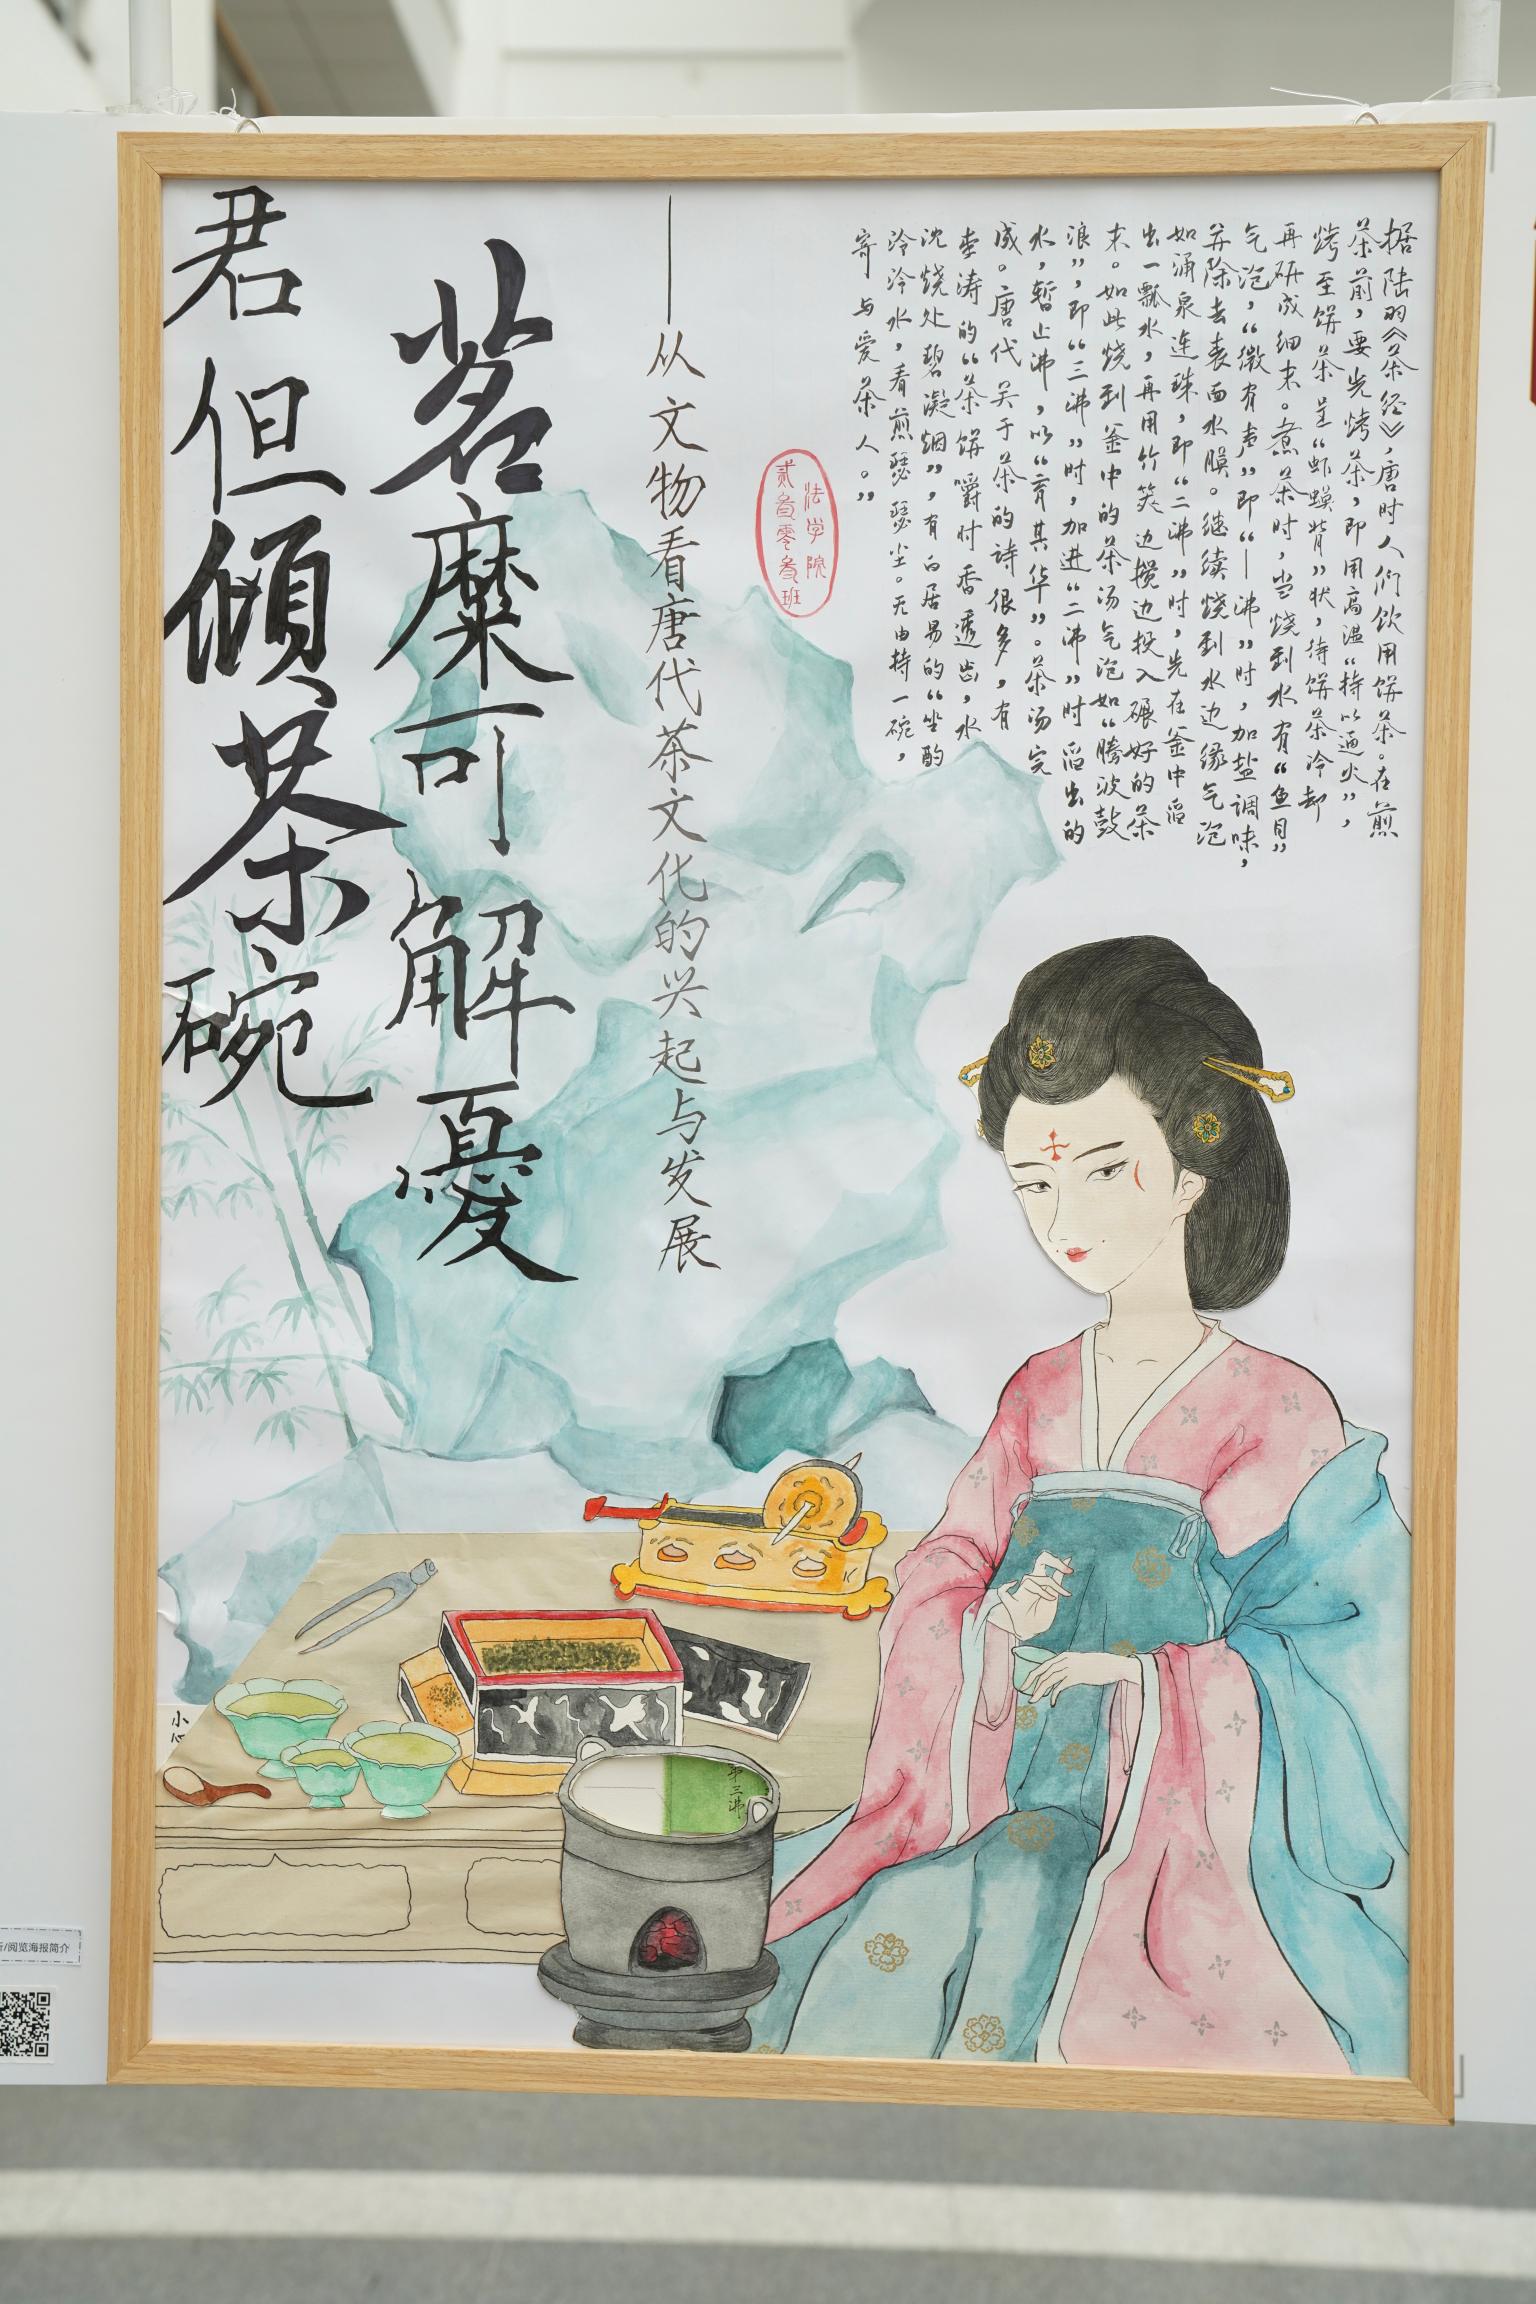 据陆羽《茶经》，唐时人们饮用饼茶。在煎
茶前，要先烤茶，即用高温“持以逼火”，
烤至饼茶呈“虾蟆背”状，待饼茶冷却
再研成细末。煮茶时，当烧到水有“鱼目”
气泡，“微有声”即“一沸”时，加盐调味，
并除去表面水膜。继续烧到水边缘气泡
如涌泉连珠，即“二沸”时，先在釜中舀
出一瓢水，再用竹筴边搅边投入碾好的茶
末。如此烧到釜中的茶汤气泡如“腾波鼓
浪”，即“三沸”时，加进“二沸”时舀出的
水，暂止沸，以“育其华”。茶汤完
成。唐代关于茶的诗很多，有
李涛的“茶饼嚼时香透齿，水
沈烧处碧凝烟”，有白居易的“坐酌
泠泠水，看煎瑟瑟尘。无由持一碗，
寄与爱茶人。”
法学院
贰叁零叁班
——从文物看唐代茶文化的兴起与发展
茗糜可解憂
君但傾茶碗
小心
第三沸
/阅览海报简介